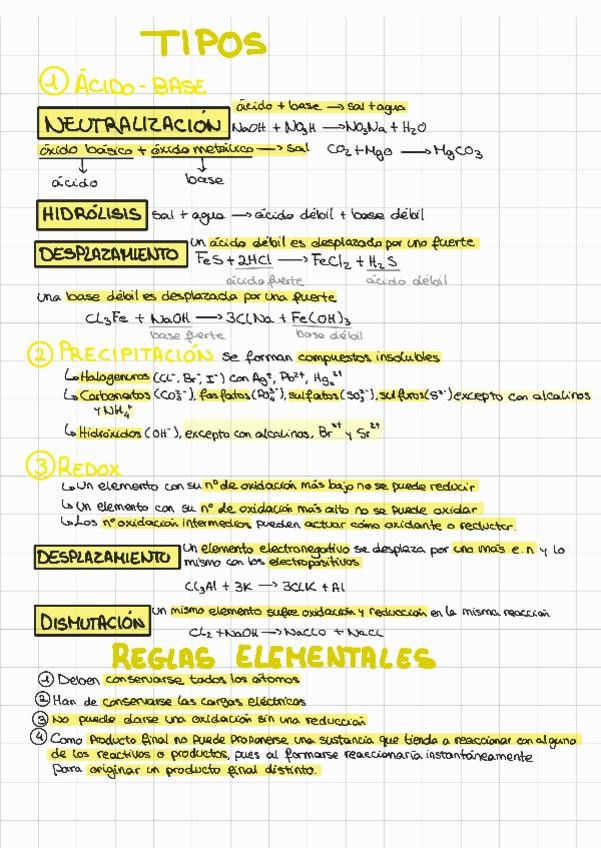 TIPOS
1 ÁCIDO-BASE
ácido + base → sal + agua
NEUTRALIZACIÓN NaOH + NO3H → NO3Na + H2O
óxido básico + óxido metálico → sal CO2 + MgO → MgCO3
ácido base
HIDRÓLISIS sal + agua → ácido débil + base débil
un ácido débil es desplazado por uno fuerte
DESPLAZAMIENTO FeS + 2HCl → FeCl2 + H2S
ácido fuerte ácido débil
una base débil es desplazada por una fuerte
Cl3Fe + NaOH → 3ClNa + Fe(OH)3
base fuerte base débil
2 PRECIPITACIÓN se forman compuestos insolubles
↳ Halogenuros (Cl⁻, Br⁻, I⁻) con Ag⁺, Pb²⁺, Hg₂²⁺
↳ Carbonatos (CO3²⁻), fosfatos (PO4³⁻), sulfatos (SO3²⁻), sulfuros (S²⁻) excepto con alcalinos
y NH4⁺
↳ Hidróxidos (OH⁻), excepto con alcalinos, Br²⁺ y Sr²⁺
3 REDOX
↳ Un elemento con su nº de oxidación más bajo no se puede reducir
↳ Un elemento con su nº de oxidación más alto no se puede oxidar
↳ Los nº oxidación intermedios pueden actuar como oxidante o reductor.
Un elemento electronegativo se desplaza por uno más e.n y lo
DESPLAZAMIENTO mismo con los electropositivos
Cl3Al + 3K → 3ClK + Al
DISMUTACIÓN un mismo elemento sufre oxidación y reducción en la misma reacción
Cl2 + NaOH → NaClO + NaCl
REGLAS ELEMENTALES
1 Deben conservarse todos los átomos
2 Han de conservarse las cargas eléctricas
3 No puede darse una oxidación sin una reducción
4 Como Producto final no Puede Proponerse una sustancia que tienda a reaccionar con alguno
de los reactivos o productos, pues al formarse reaccionaría instantáneamente
Para originar un producto final distinto.